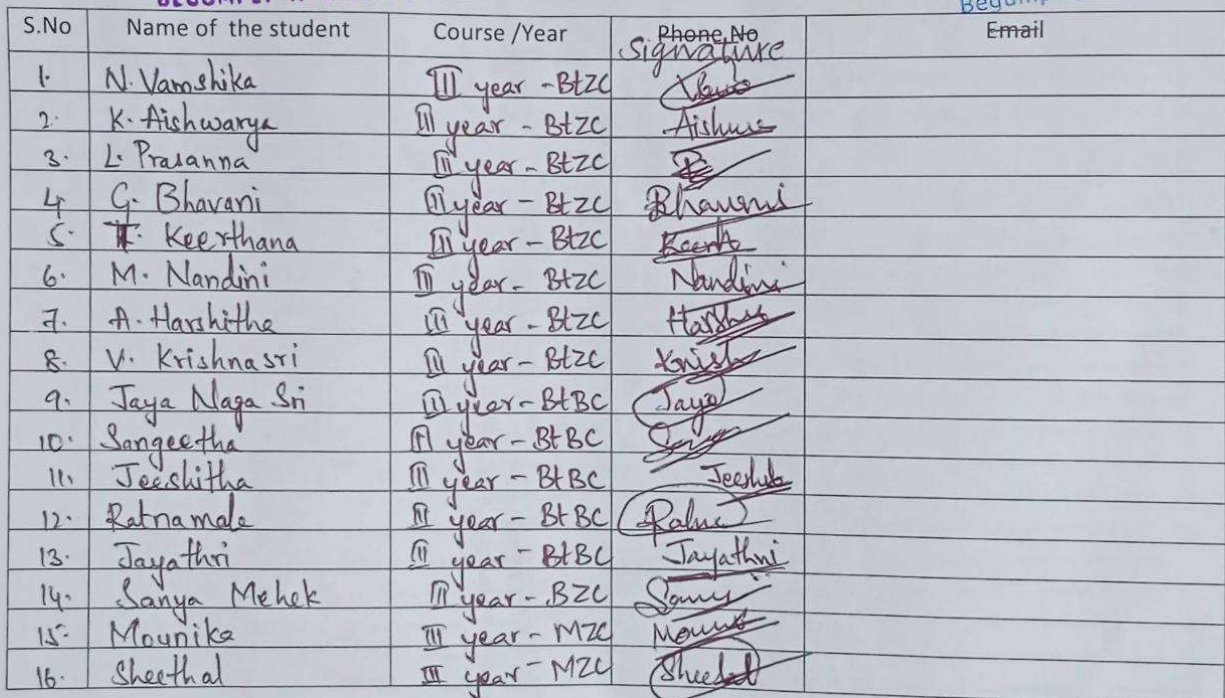 S.No Name of the student Course /Year Phone No Signature Email
1. N. Vamshika III year - BtZC
2. K. Aishwarya III year - BtZC Aishwa
3. L. Prasanna III year - BtZC
4. G. Bhavani III year - BtZC Bhavani
5. T. Keerthana III year - BtZC Keerth
6. M. Nandini III year - BtZC Nandini
7. A. Harshitha III year - BtZC Harshi
8. V. Krishnasri III year - BtZC Krish
9. Jaya Naga Sri III year - BtBC Jaya
10. Sangeetha III year - BtBC
11. Jeeshitha III year - BtBC Jeeshita
12. Ratnamala III year - BtBC Ratna
13. Jayathri III year - BtBC Jayathri
14. Sanya Mehek III year - BZC
15. Mounika III year - MZC
16. Sheethal III year - MZC Sheethal